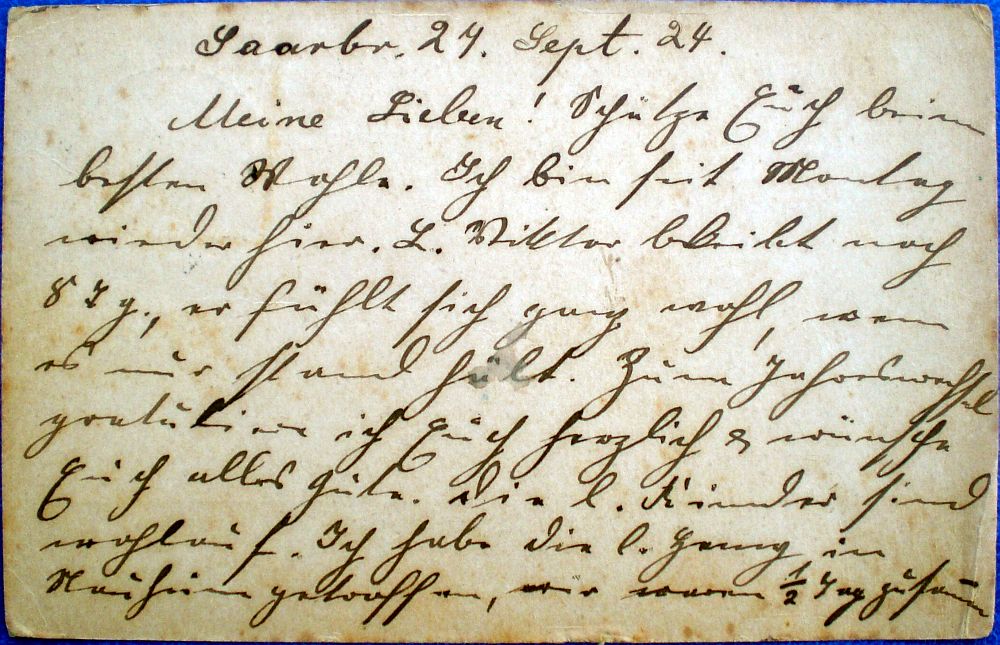 Saarbr. 24. Sept. 24.
Meine Lieben! Schätze Euch beim
besten Wohle. Ich bin seit Montag
wieder hier. L. Viktor bleibt noch
8 Tg., er fühlt sich ganz wohl, wenn
es nur stand hält. Zum Jahreswechsel
gratuliere ich Euch herzlich & wünsche
Euch alles Gute. Die l. Kinder sind
wohlauf. Ich habe die l. in
Nauheim getroffen, wir waren ½ Tag zusamm